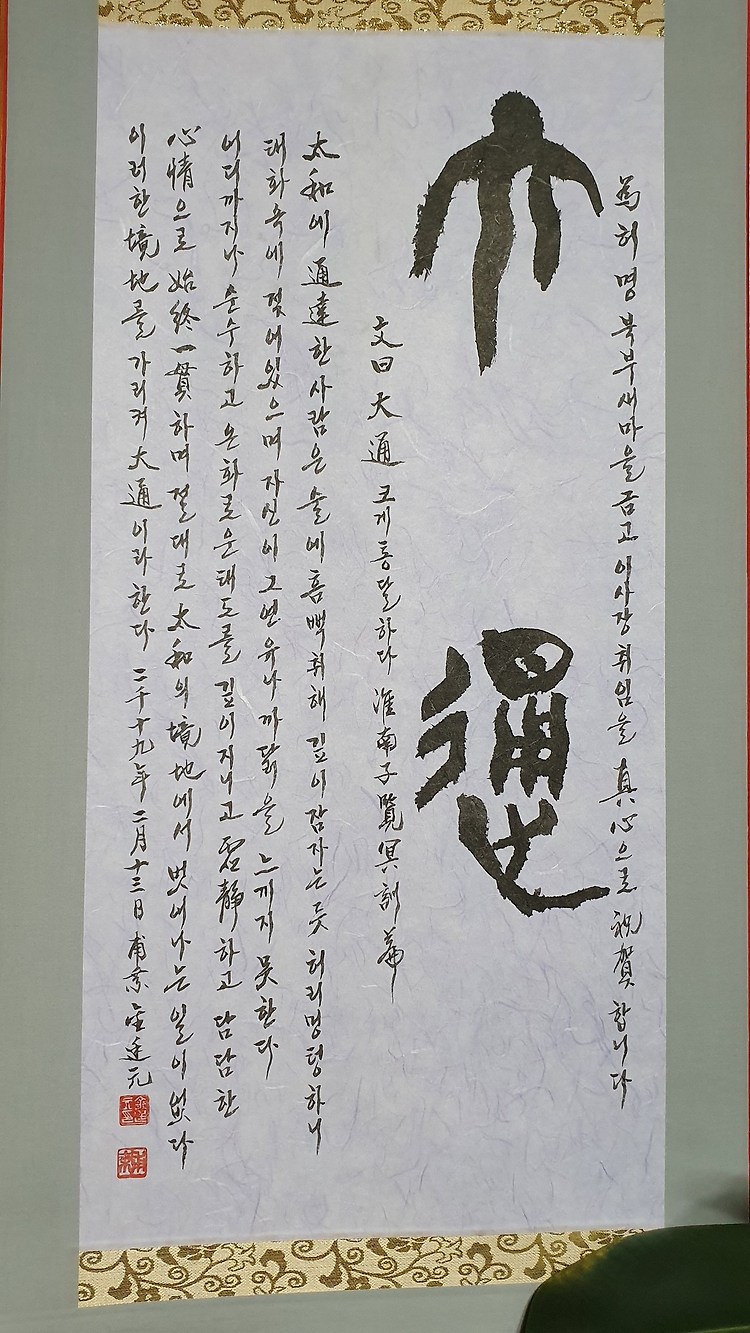 為 허명 북부새마을금고 이사장 취임을 真心으로 祝賀합니다
大通
文曰 大通 크게 통달하다 淮南子 覽冥訓 篇
太和에 通達한 사람은 술에 흠뻑 취해 깊이 잠자는 듯 허리멍텅하니
태화 속에 젖어있으며 자신이 그 연유나 까닭을 느끼지 못한다
어디까지나 순수하고 온화로운 태도를 깊이 지니고 虛靜하고 담담한
心情으로 始終一貫하며 절대로 太和의 境地에서 벗어나는 일이 없다
이러한 境地를 가리켜 大通이라 한다 二千十九年 二月十三日 甫京 金廷元